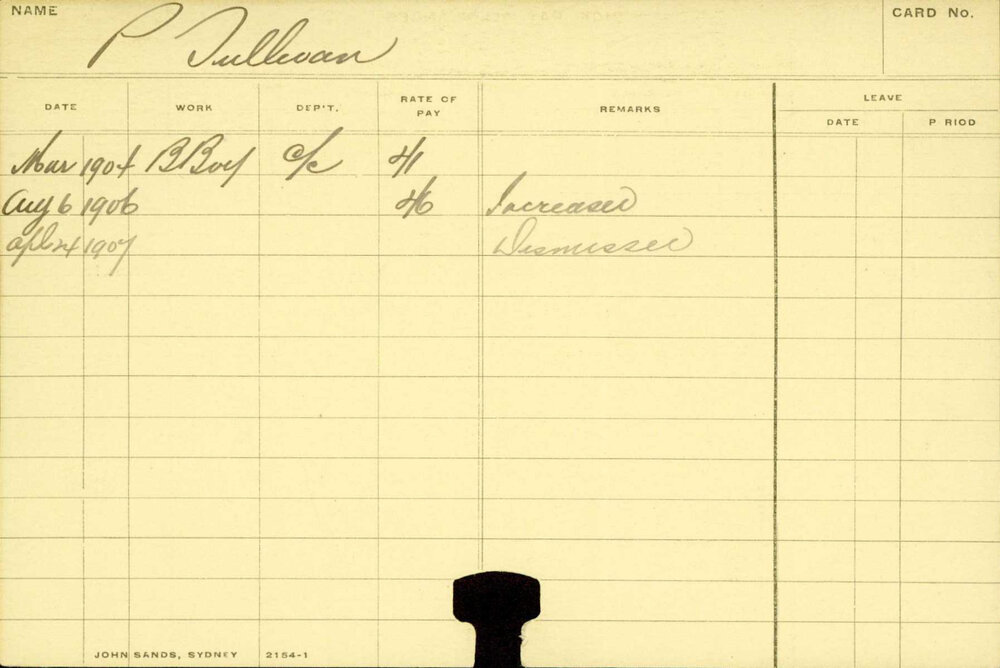 NAME P Sullivan CARD No.
DATE WORK DEP'T. RATE OF PAY REMARKS LEAVE
DATE P RIOD
Mar 1904 B.Boy c/c 4/1
Aug 6 1906 4/6 Increased
Apl 24 1907 Dismissed
JOHN SANDS, SYDNEY 2154-1